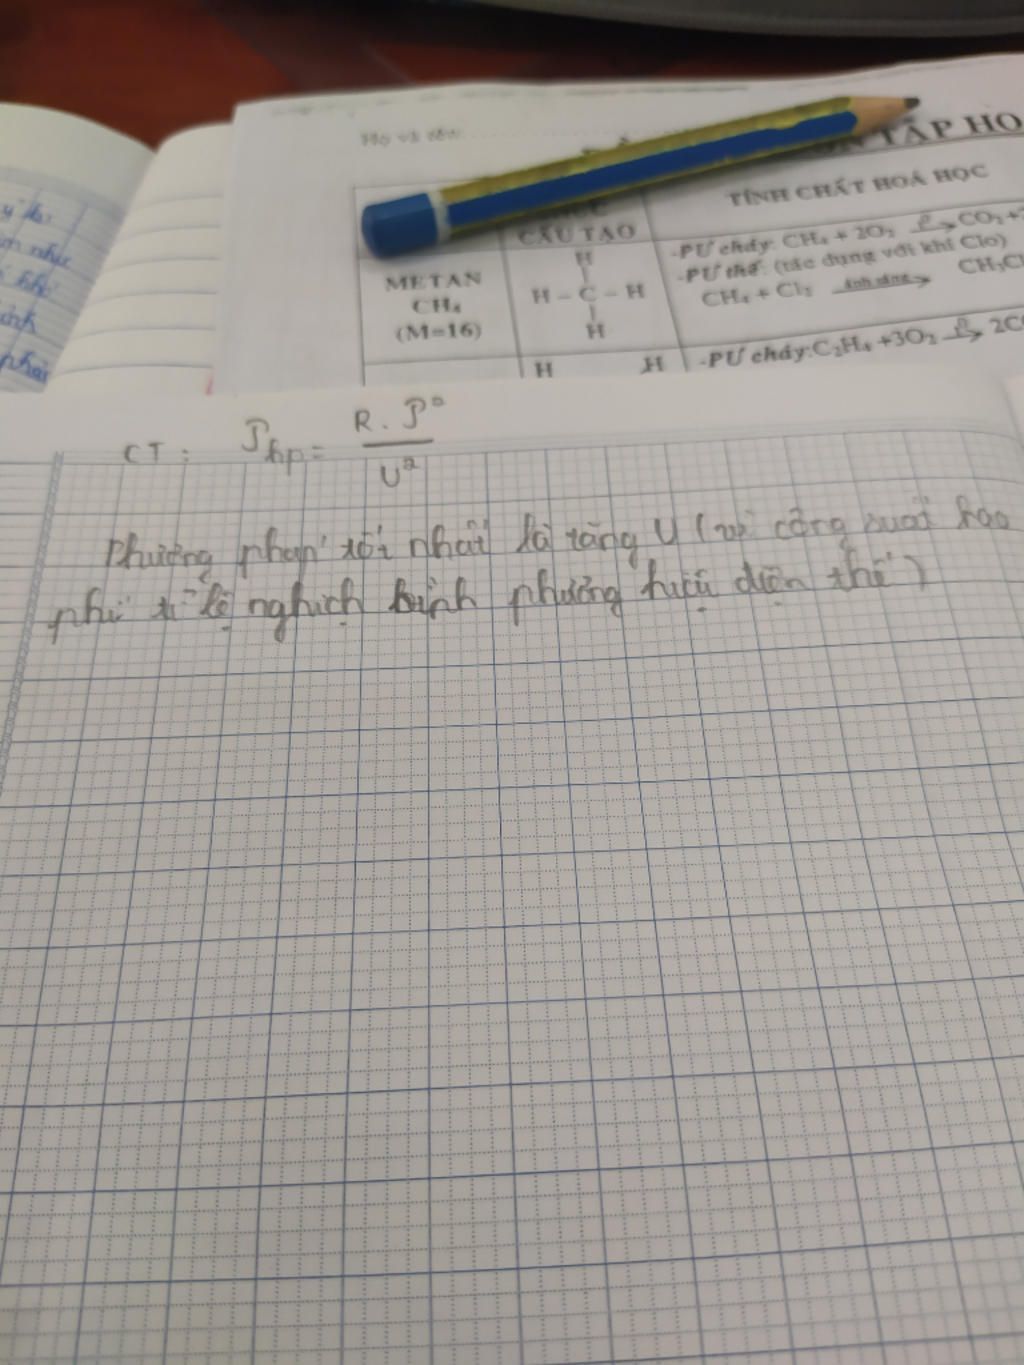 Họ và tên:
ÔN TẬP HO
CẤU TẠO
TÍNH CHẤT HOÁ HỌC
METAN
CH₄
(M=16)
H
H – C – H
H
-PƯ cháy: CH₄ + 2O₂ CO₂ +
-PƯ thế: (tác dụng với khí Clo)
CH₄ + Cl₂ ánh sáng CH₃Cl
H H
-PƯ cháy: C₂H₄ +3O₂ 2CO
CT: P hp = R . P² / U²
Phương pháp tốt nhất là tăng U (vì công suất hao
phí tỉ lệ nghịch bình phương hiệu điện thế)